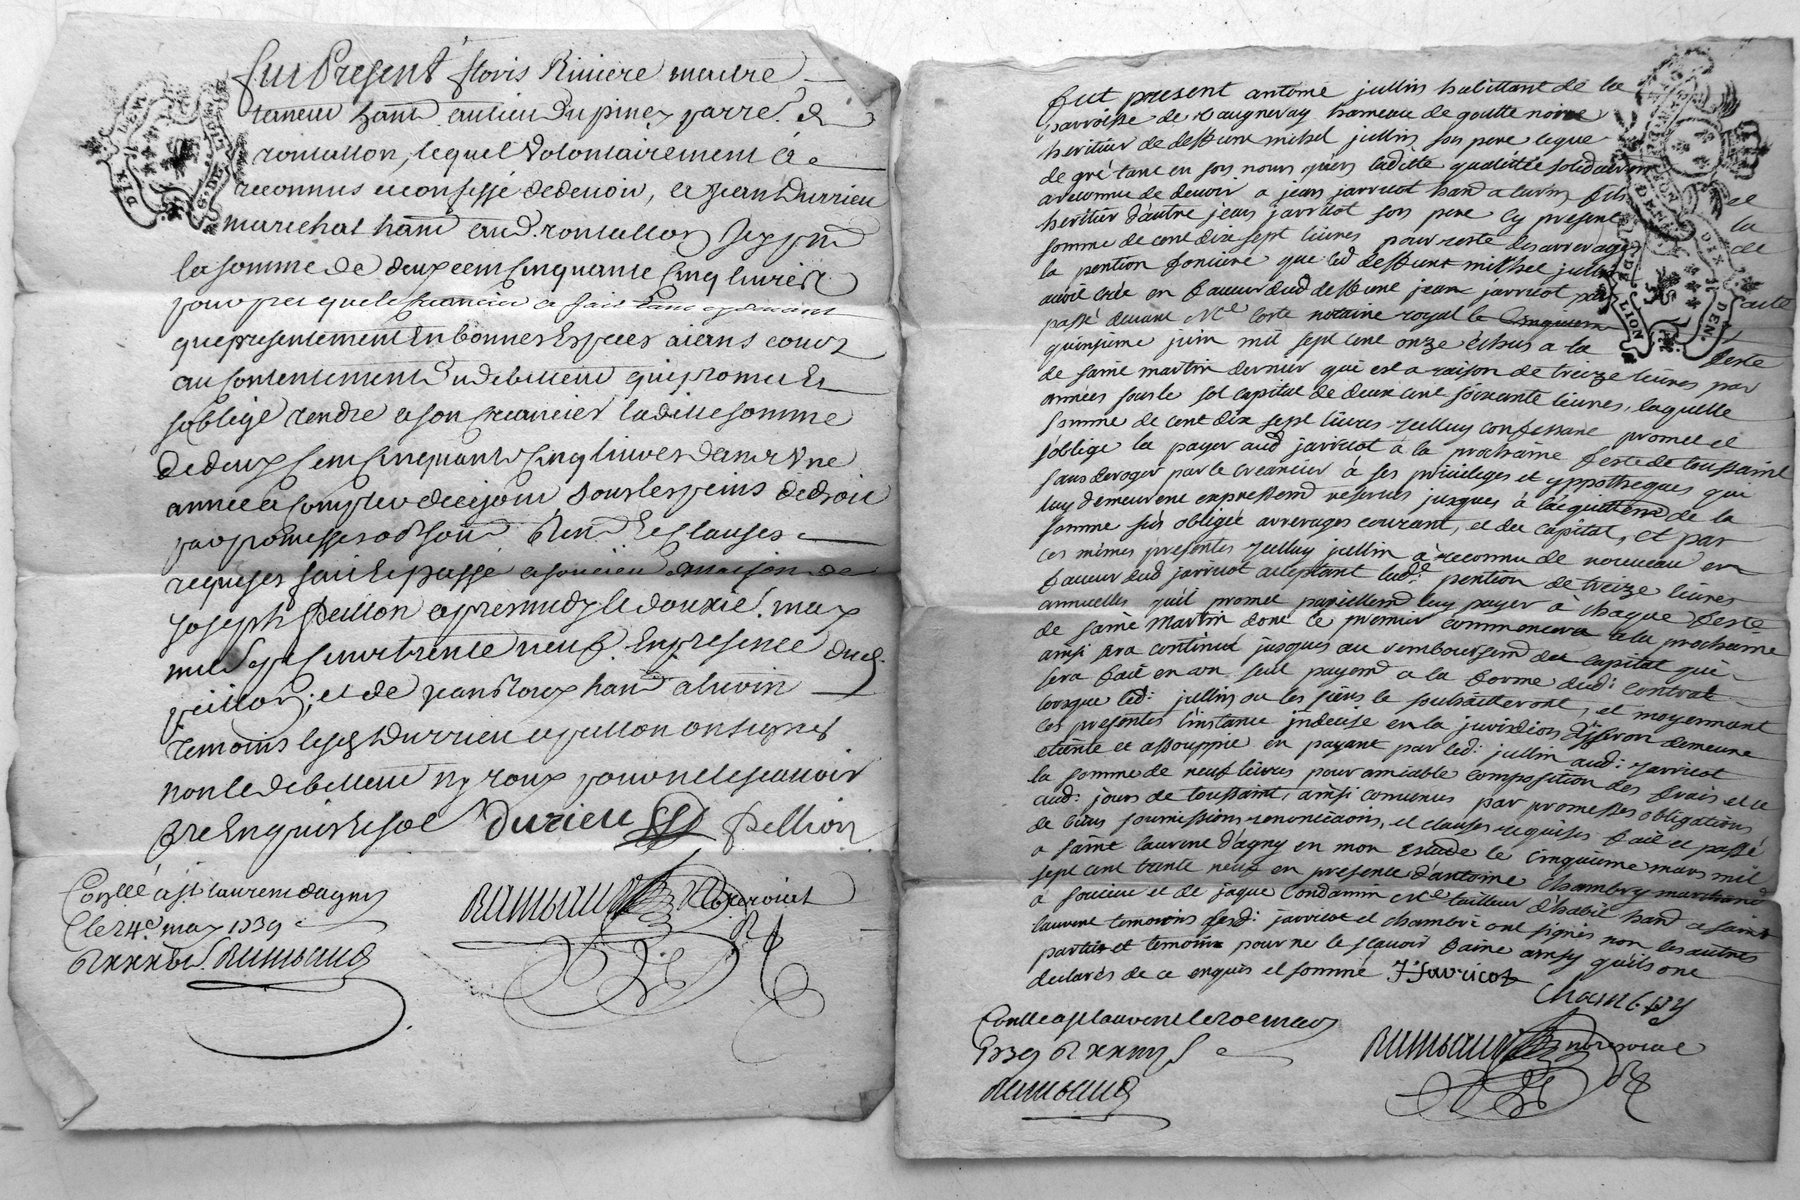 Fut Present Riviere
hant au lieu du pinez
rontallon, lequel volontairement a
reconnus et confessé de devoir, a Jean Durrieu
marechal hant aud. rontallon
la somme de deux cent cinquante cinq livres
que presentement en bonnes Especes aiant cours
au contentement du debitteur qui promet et
soblige rendre a son creancier laditte somme
de deux cent cinquante cinq livres dans une
année a compter de ce jour sous les peins de droit
par promesses
requises fait et passé a soucieu maison de
Joseph peillon apres midy le douxie. may
mil sept cent trente neuf. En presence dud.
peillon; et de jean Roux hant a thurin
temoins lesq. Durrieu et peillon ont signes
non le debitteur ny roux pour ne le scavoir
de ce Enquis et so. Durieu Pellion
Conlle a st laurent dagny
le 24e. may 1739
Rambaud
Rambaud
DIX DEN.
G. DE LION
fut present antoine jullin habittant de la
parroisse de vaugneray hameau de goutte noire
heritier de deffunt michel jullin son pere lequel
de gré tant en son nom qu'en laditte qualittée solidairement
a reconnu de devoir a jean jarricot hant a fils et
heritier d'autre jean jarricot son pere cy present la
somme de cent dix sept livres pour reste des arrerages de
la pention fonciere que led deffunt michel jullin
avoit crée en faveur dud deffunt jean jarricot par acte
passé devant Me notaire royal le cinquiem
quinsieme juin mil sept cent onze échus a la feste
de saint martin dernier qui est a raison de treize livres par
années sous le sol capital de deux cent soixante livres, laquelle
somme de cent dix sept livres jullin confessant promet et
s'oblige la payer aud jarricot a la prochaine feste de toussaint
sans deroger par le creancier a ses privileges et yppotheques qui
luy demeurent expressemt reservés jusques à l'acquittemt de la
somme sus obligée arrerages courant, et du capital, et par
ces mêmes presentes jullin a reconnu de nouveau en
faveur dud jarricot acceptant lad. pention de treize livres
annuelles qu'il promet pareillemt luy payer à chaque feste
de saint Martin dont le premier commencera a la prochaine
ainsi sera continué jusques au remboursemt du capital qui
sera fait en un seul payemt a la forme dud: contrat
lorsque led: jullin ou les siens le souhaitteront, et moyennant
ces presentes l'instance indecise en la juridiction d'yseron demeure
eteinte et assouppie en payant par led: jullin aud: jarricot
la somme de neuf livres pour amiable composition des frais et ce
aud: jours de toussaint, ainsi convenus par promesses obligations
de biens soumissions renonciaons, et clauses requises fait et passé
a saint laurent d'agny en mon Estude le cinquieme mars mil
sept cent trente neuf en presence d'antoine chambry marchand
a soucieu et de jaque Condamin Me tailleur d'habit hant a saint
laurent temoins led: jarricot et chambri ont signés non les autres
parties et temoins pour ne le scavoir faire ainsy qu'ils ont
declarés de ce enquis et sommé J Jarricot
Chambry
Conlle a st laurent le 20e mars
1739
Rambaud
Rambaud
G. DE LION
DIX DEN.